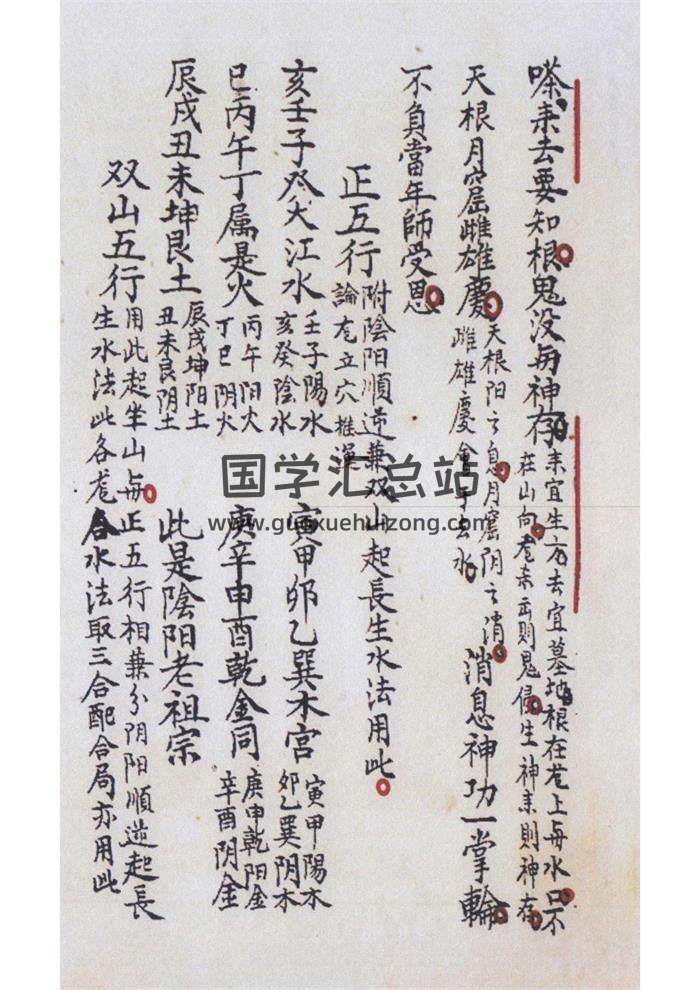 嗏來去要知根鬼没毎神存來宜生方去宜墓地根在老上毎水口不
在山向老來庫則鬼侵生神來則神存
天根月窟雌雄慶天根阳之息月窟阴之消消息神功一掌輪
雌雄慶會于去水
不負當年師受恩
正五行附陰阳順逆兼双山起長生水法用此
論老立穴推運
亥壬子癸大江水壬子陽水寅甲卯乙巽木宮寅甲陽木
亥癸陰水卯乙巽阴木
巳丙午丁属是火丙午阳火庚辛申酉乾金同庚申乾阳金
丁巳阴火辛酉阴金
辰戌丑未坤艮土辰戌坤阳土此是陰阳老祖宗
丑未艮阴土
双山五行用此起坐山毎正五行相兼分阴阳順逆起長
生水法此各老合水法取三合配合局亦用此
国学汇总站
www.guoxuehuizong.com